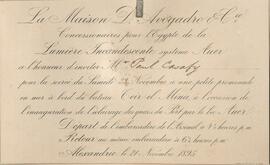 La Maison D. Avogadro & Cie
Concessionnaires pour l'Egypte de la
Lumière Incandescente système Auer
a l'honneur d'inviter Mr Paul
pour la soirée du Samedi Novembre à une petite promenade
en mer à bord du bateau Toir el Mina, à l'occasion de
l'inauguration de l'éclairage des quais du Port par le bec Auer.
Départ de l'embarcadère de l'Arsenal à heures p.m.
Retour au même embarcadère à 6½ heures p.m.
Alexandrie, le 21 Novembre 1895